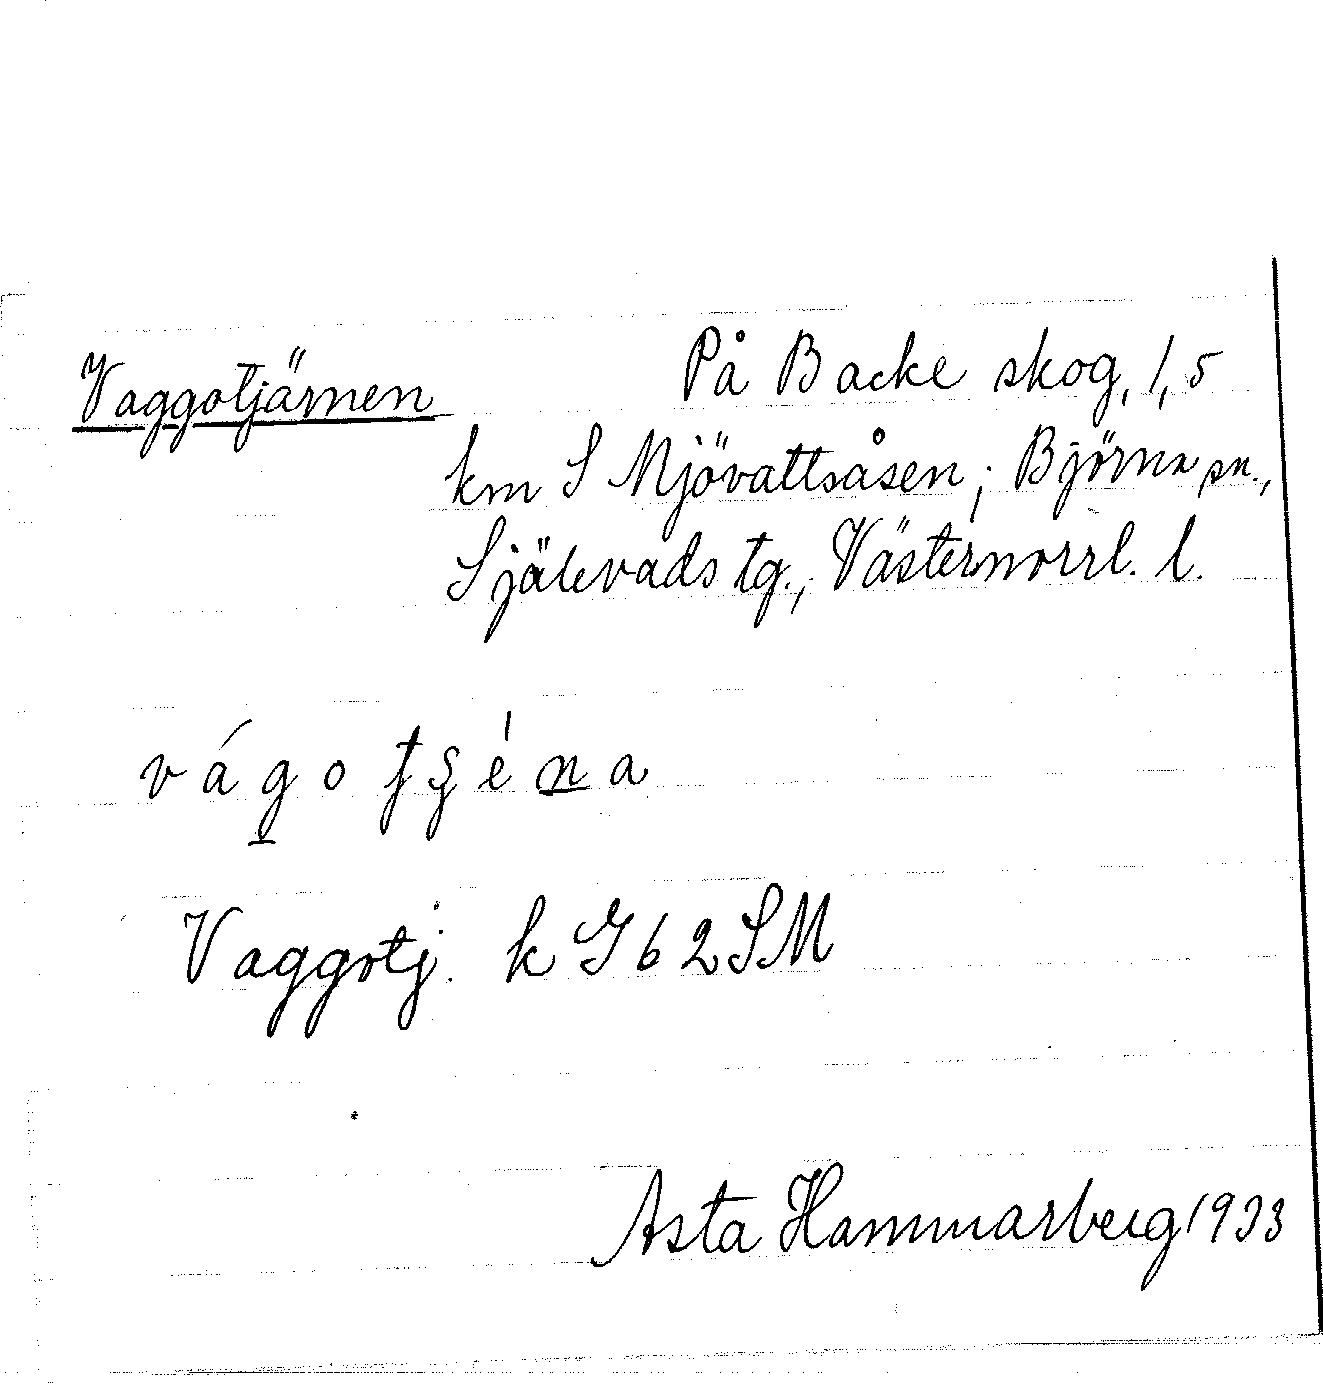 Vaggotjärnen På Backe skog, 1,5
km S Mjövattsåsen; Björna sn.,
Själevads tg., Västernorrl. l.
vágo tʂéna
Vaggotj. k G 62 SM
Asta Hammarberg 1933